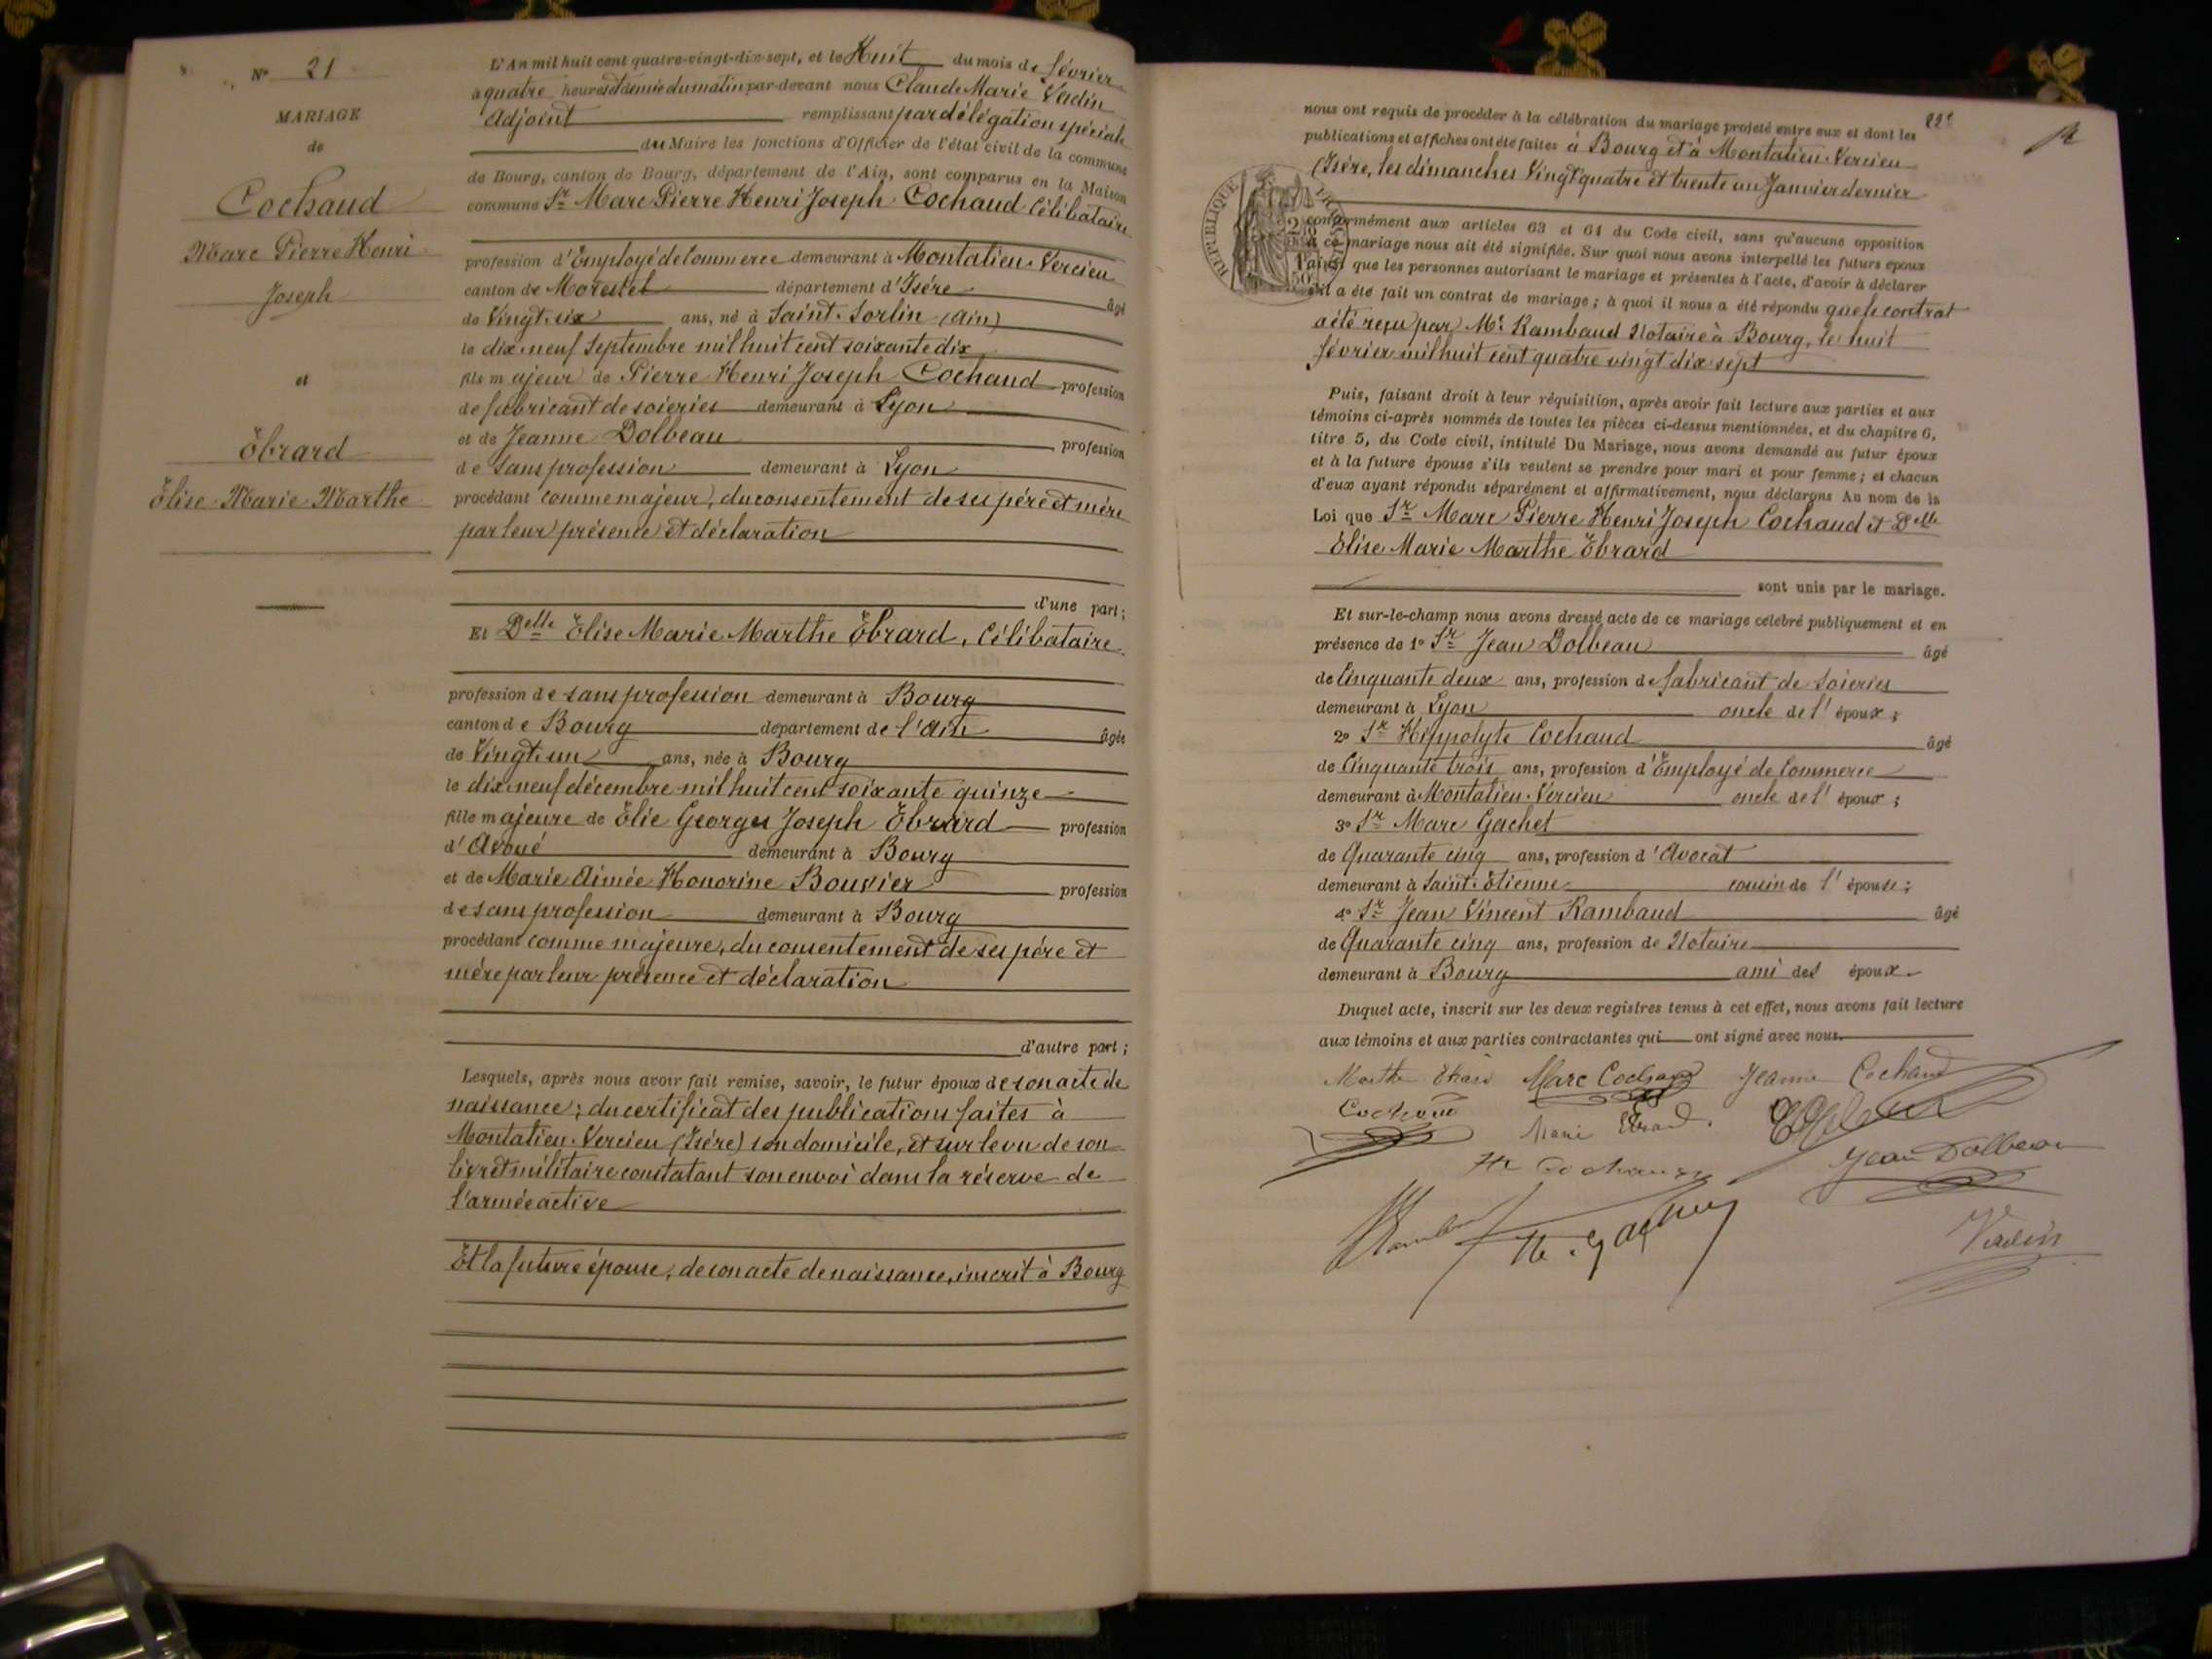 N° 21
MARIAGE
de
Cochaud
Marc Pierre Henri
Joseph
et
Ébrard
Élise Marie Marthe
L'An mil huit cent quatre-vingt-dix-sept, et le Huit du mois de février
a quatre heures et demie du matin par-devant nous Claude Marie Verdin
Adjoint remplissant par délégation spéciale
du Maire les fonctions d'Officier de l'état civil de la commune
de Bourg, canton de Bourg, département de l'Ain, sont comparus en la Maison
commune Sr Marc Pierre Henri Joseph Cochaud Célibataire
profession d'Employé de Commerce demeurant à Montalieu-Vercieu
canton de Morestel département d'Isére âgé
de Vingt-six ans, né à Saint-Sorlin (Ain)
le dix-neuf Septembre mil huit cent soixante dix
fils majeur de Pierre Henri Joseph Cochaud profession
de fabricant de soieries demeurant à Lyon
et de Jeanne Dolbeau profession
de sans profession demeurant à Lyon
procédant comme majeur, du consentement de ses pére et mére
par leur présence et déclaration
d'une part;
Et Delle Élise Marie Marthe Ébrard, Célibataire
profession de sans profession demeurant à Bourg
canton de Bourg département de l'Ain âgée
de Vingt-un ans, née à Bourg
le dix-neuf décembre mil huit cent soixante quinze
fille majeure de Élie Georges Joseph Ébrard profession
d'Avoué demeurant à Bourg
et de Marie Aimée Honorine Bouvier profession
de sans profession demeurant à Bourg
procédant comme majeure, du consentement de ses pére et
mére par leur présence et déclaration
d'autre part;
Lesquels, après nous avoir fait remise, savoir, le futur époux de son acte de
naissance; du certificat des publications faites à
Montalieu-Vercieu (Isére) son domicile, et sur le vu de son
livret militaire constatant son envoi dans la réserve de
l'armée active
Et la future épouse, de son acte de naissance, inscrit à Bourg
nous ont requis de procéder à la célébration du mariage projeté entre eux et dont les
publications et affiches ont été faites à Bourg et à Montalieu-Vercieu
(Isére, les dimanches Vingt quatre et trente un Janvier dernier
REPUBLIQUE
conformément aux articles 63 et 64 du Code civil, sans qu'aucune opposition
à ce mariage nous ait été signifiée. Sur quoi nous avons interpellé les futurs époux
ainsi que les personnes autorisant le mariage et présentes à l'acte, d'avoir à déclarer
s'il a été fait un contrat de mariage; à quoi il nous a été répondu que le contrat
a été reçu par Me Rambaud Notaire à Bourg, le huit
février mil huit cent quatre vingt dix sept
Puis, faisant droit à leur réquisition, après avoir fait lecture aux parties et aux
témoins ci-après nommés de toutes les pièces ci-dessus mentionnées, et du chapitre 6,
titre 5, du Code civil, intitulé Du Mariage, nous avons demandé au futur époux
et à la future épouse s'ils veulent se prendre pour mari et pour femme; et chacun
d'eux ayant répondu séparément et affirmativement, nous déclarons Au nom de la
Loi que Sr Marc Pierre Henri Joseph Cochaud et Delle
Élise Marie Marthe Ébrard
sont unis par le mariage.
Et sur-le-champ nous avons dressé acte de ce mariage célébré publiquement et en
présence de 1° Sr Jean Dolbeau âgé
de Cinquante deux ans, profession de fabricant de Soieries
demeurant à Lyon oncle de l'époux;
2° Sr Hippolyte Cochaud âgé
de Cinquante trois ans, profession d'Employé de Commerce
demeurant à Montalieu-Vercieu oncle de l'époux;
3° Sr Marc Gachet
de Quarante cinq ans, profession d'Avocat
demeurant à Saint-Etienne cousin de l'épouse;
4° Sr Jean Vincent Rambaud âgé
de Quarante cinq ans, profession de Notaire
demeurant à Bourg ami des époux
Duquel acte, inscrit sur les deux registres tenus à cet effet, nous avons fait lecture
aux témoins et aux parties contractantes qui ont signé avec nous.
Marthe Ebrard Marc Cochaud Jeanne Cochaud
Cochaud Marie Ebrard
Hte Cochaud Jean Dolbeau
Verdin